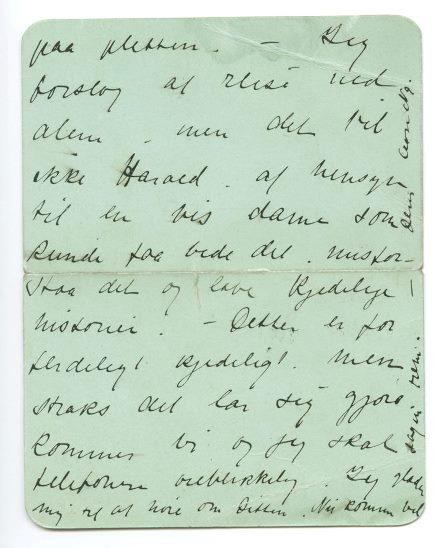 paa pletten. — Jeg
forslog at reise ned
alene, men det vil
ikke Harald. af hensyn
til en vis dame som
kunde faa vide det, misfor-
staa det og lave kjedelige
historier. — Dette er for-
ferdeligt kjedeligt. Men
straks det lar sig gjøre
kommer vi og jeg skal
telefonere øieblikkelig. Jeg glæder
mig til at høre om Sitten. Nu kommer vel